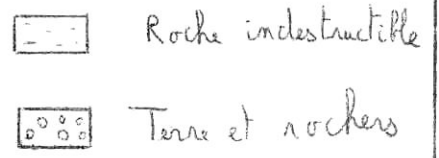 Roche indestructible
Terre et rochers